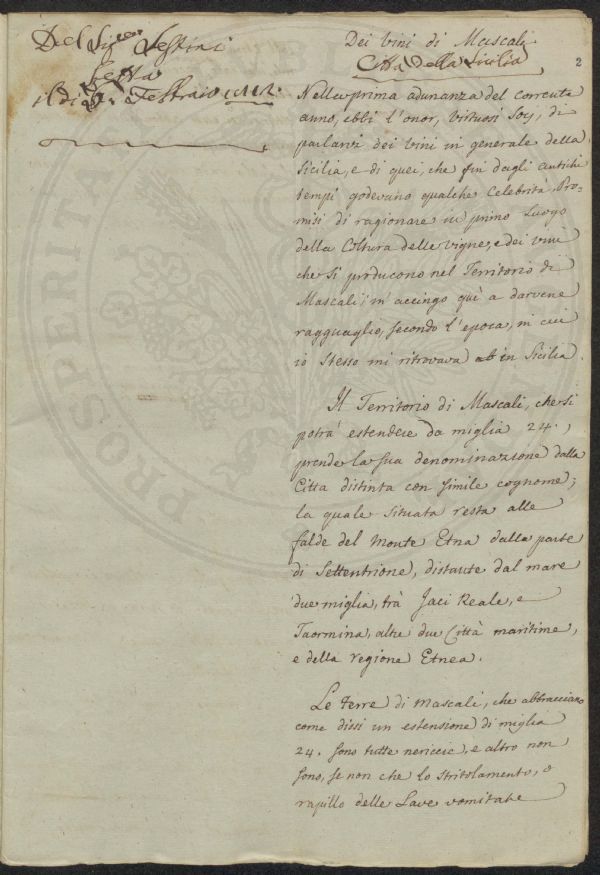 Del Sig.re Sestini
Letta
il dì 9. Febbraio 1812.
Dei Vini di Mascali
Città della Sicilia
2
Nella prima adunanza del corrente
anno, ebbi l'onor, virtuosi Socj, di
parlarvi dei vini in generale della
Sicilia, e di quei, che fin dagli antichi
tempi godevano qualche Celebrità. Pro-
misi di ragionare in primo Luogo
della Coltura delle vigne, e dei vini
che si producono nel Territorio di
Mascali; m'accingo quì a darvene
ragguaglio, secondo l'epoca, in cui
io stesso mi ritrovava in Sicilia.
Il Territorio di Mascali, che si
potrà estendere da miglia 24.,
prende la sua denominazione dalla
Città distinta con simile cognome;
la quale situata resta alle
falde del Monte Etna dalla parte
di Settentrione, distante dal mare
due miglia, trà Jaci Reale, e
Taormina, altre due Città maritime,
e della regione Etnea.
Le terre di Mascali, che abbracciano
come dissi un estensione di miglia
24. sono tutte nericcie, e altro non
sono, se non che lo stritolamento, o
rapillo delle Lave vomitate
PROSPERI